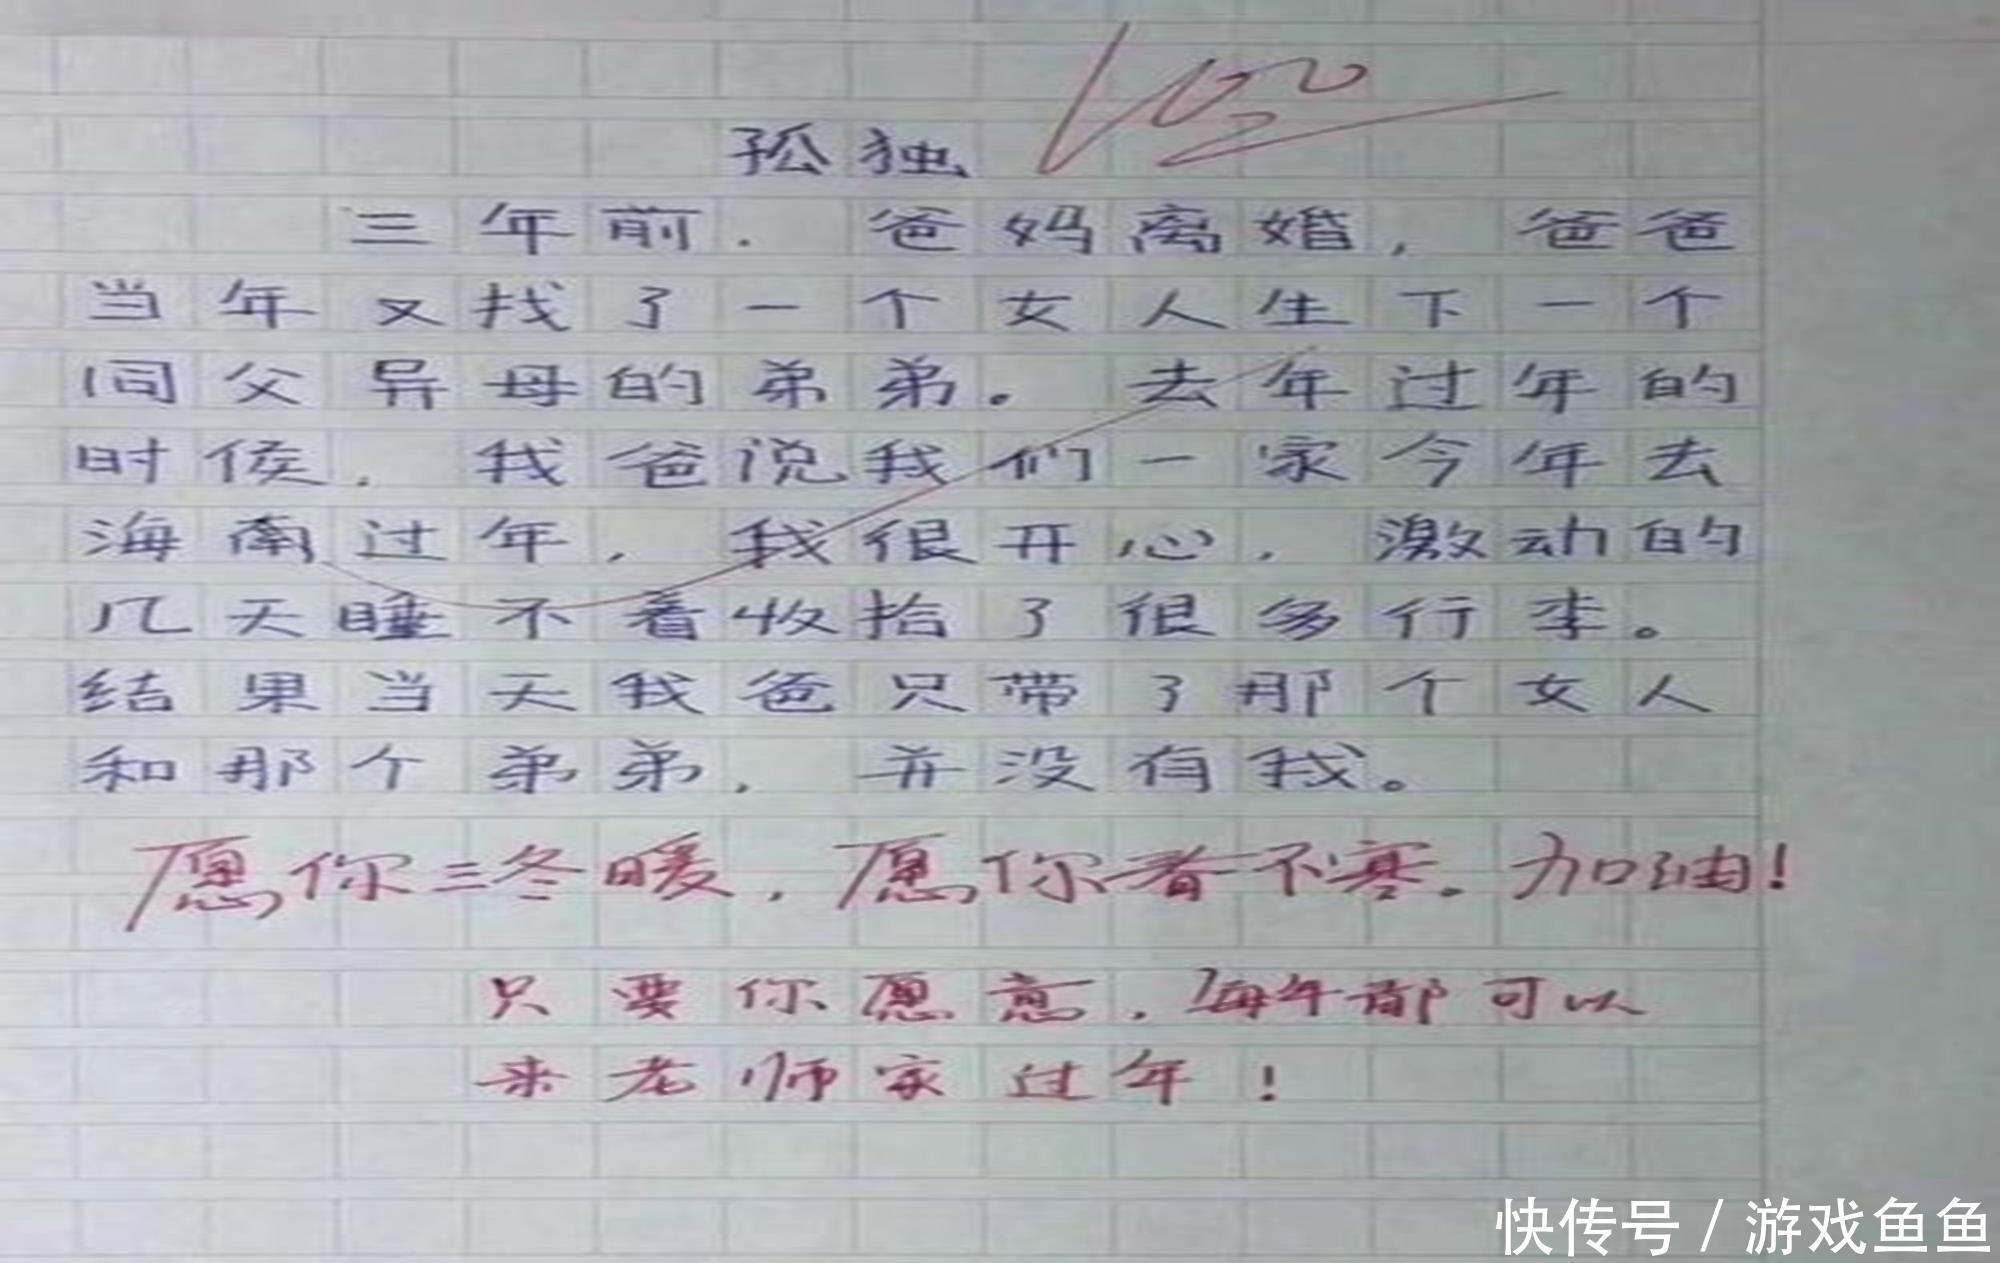 孤独
100
三年前. 爸妈离婚, 爸爸
当年又找了一个女人生下一个
同父异母的弟弟。去年过年的
时侯, 我爸说我们一家今年去
海南过年, 我很开心, 激动的
几天睡不着收拾了很多行李。
结果当天我爸只带了那个女人
和那个弟弟, 并没有我。
愿你三冬暖, 愿你春不寒. 加油!
只要你愿意, 每年都可以
来老师家过年!
快传号 / 游戏鱼鱼